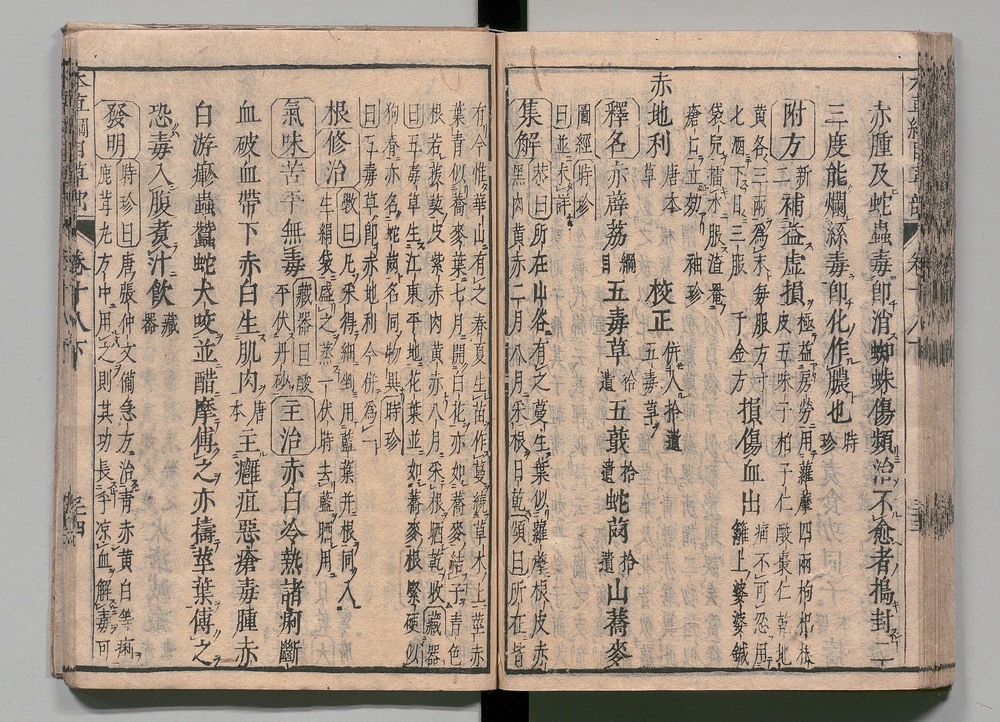 赤腫及蛇蟲毒卽消蜘蛛傷頻治不愈者搗封二
三度能爛絲毒卽化作膿也 時珍
附方 新二補益虛損 極益房勞用蘿藦四兩枸杞根
皮五味子柏子仁酸棗仁乾地
黃各三兩爲末每服方寸
七酒下日三服 千金方 損傷血出 痛不可忍用
籬上婆婆鍼
袋兒擂水服渣罨
瘡口立效 袖珍
赤地利 唐本草 校正 併入拾遺五毒草
釋名 赤薜荔 綱目 五毒草 拾遺 五蕺 拾遺 蛇䓖 拾遺 山蕎麥
圖經 時珍
曰並未詳
集解 恭曰所在山谷有之蔓生葉似蘿藦根皮赤
黑肉黃赤二月八月采根日乾頌曰所在皆
有今惟華山有之春夏生苗作蔓繞草木上莖赤
葉青似蕎麥葉七月開白花亦如蕎麥結子青色
根若菝葜皮紫赤肉黃赤八月采根晒乾收 藏器
曰五毒草生江東平地花葉並如蕎麥根緊硬似
狗脊亦名蛇䓖名同物異 時珍
曰五毒草卽赤地利今併爲一
根 修治 斅曰凡采得細剉用藍葉幷根同入
生絹袋盛之蒸一伏時去藍晒用
氣味 苦平無毒 藏器曰酸平伏丹砂 主治 赤白冷熱諸痢斷
血破血帶下赤白生肌肉 唐本 主癰疽惡瘡毒腫赤
白游瘮蟲蠶蛇犬咬並醋摩傅之亦擣莖葉傅之
恐毒入腹煑汁飲 藏器
發明 時珍曰唐張仲文備急方治青赤黃白等痢
鹿茸丸方中用之則其功長于凉血解毒可